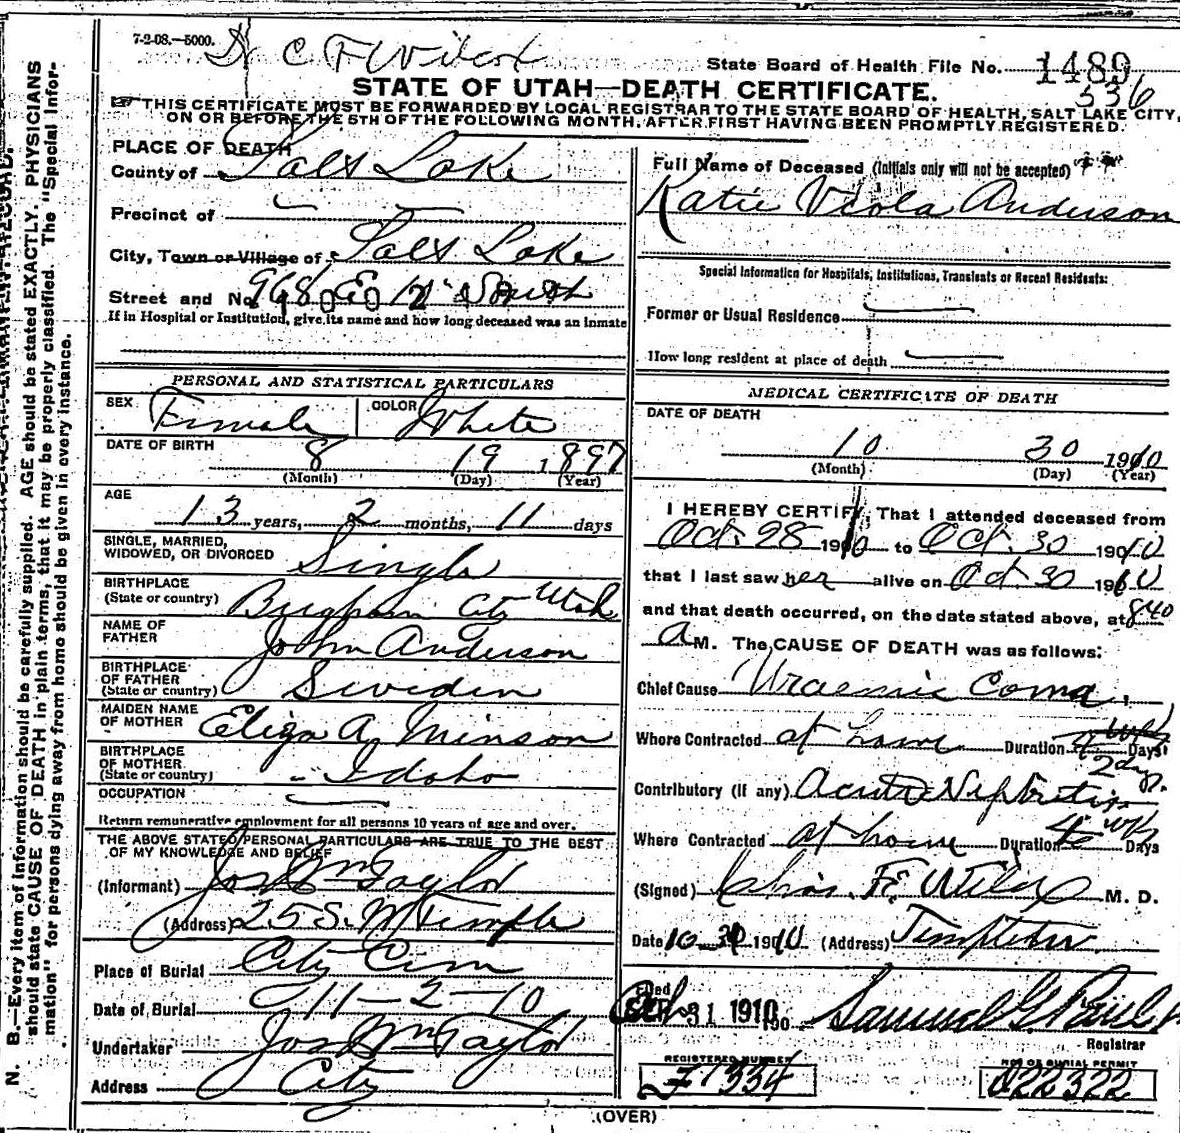 7-2-08.—5000.
C F Wilcox
State Board of Health File No. 1489
536
STATE OF UTAH—DEATH CERTIFICATE.
THIS CERTIFICATE MUST BE FORWARDED BY LOCAL REGISTRAR TO THE STATE BOARD OF HEALTH, SALT LAKE CITY,
ON OR BEFORE THE 5TH OF THE FOLLOWING MONTH, AFTER FIRST HAVING BEEN PROMPTLY REGISTERED.
PLACE OF DEATH
County of Salt Lake
Precinct of
City, Town or Village of Salt Lake
Street and No. 968 E 12" South
If in Hospital or Institution, give its name and how long deceased was an inmate
PERSONAL AND STATISTICAL PARTICULARS
SEX Female COLOR White
DATE OF BIRTH 8 19 1897
(Month) (Day) (Year)
AGE
13 years, 2 months, 11 days
SINGLE, MARRIED,
WIDOWED, OR DIVORCED Single
BIRTHPLACE
(State or country) Brigham City Utah
NAME OF
FATHER John Anderson
BIRTHPLACE
OF FATHER
(State or country) Sweden
MAIDEN NAME
OF MOTHER Eliza A. Minson
BIRTHPLACE
OF MOTHER
(State or country) Idaho
OCCUPATION
Return remunerative employment for all persons 10 years of age and over.
THE ABOVE STATED PERSONAL PARTICULARS ARE TRUE TO THE BEST
OF MY KNOWLEDGE AND BELIEF
(Informant) Jos Wm Taylor
(Address) 25 S. W Temple
Place of Burial City Cem
Date of Burial 11-2-10
Undertaker Jos Wm Taylor
Address City
Full Name of Deceased (Initials only will not be accepted)
Katie Viola Anderson
Special Information for Hospitals, Institutions, Transients or Recent Residents:
Former or Usual Residence
How long resident at place of death
MEDICAL CERTIFICATE OF DEATH
DATE OF DEATH
10 30 1910
(Month) (Day) (Year)
I HEREBY CERTIFY, That I attended deceased from
Oct. 28 1910 to Oct. 30 1910
that I last saw her alive on Oct. 30 1910
and that death occurred, on the date stated above, at 840
A M. The CAUSE OF DEATH was as follows:
Chief Cause Uraemic Coma
Where Contracted at home Duration 2 dys. Days
Contributory (if any) Acute Nephritis
Where Contracted at home Duration 4 wks Days
(Signed) Chas. F. Wilcox M. D.
Date 10-30 1910 (Address) Templeton
Filed
Oct 31 1910 190 Samuel G. Paul
Registrar
REGISTERED NUMBER
F1334
NO. OF BURIAL PERMIT
C22322
(OVER)
N. B.—Every item of information should be carefully supplied. AGE should be stated EXACTLY. PHYSICIANS
should state CAUSE OF DEATH in plain terms, that it may be properly classified. The "Special Infor-
mation" for persons dying away from home should be given in every instance.